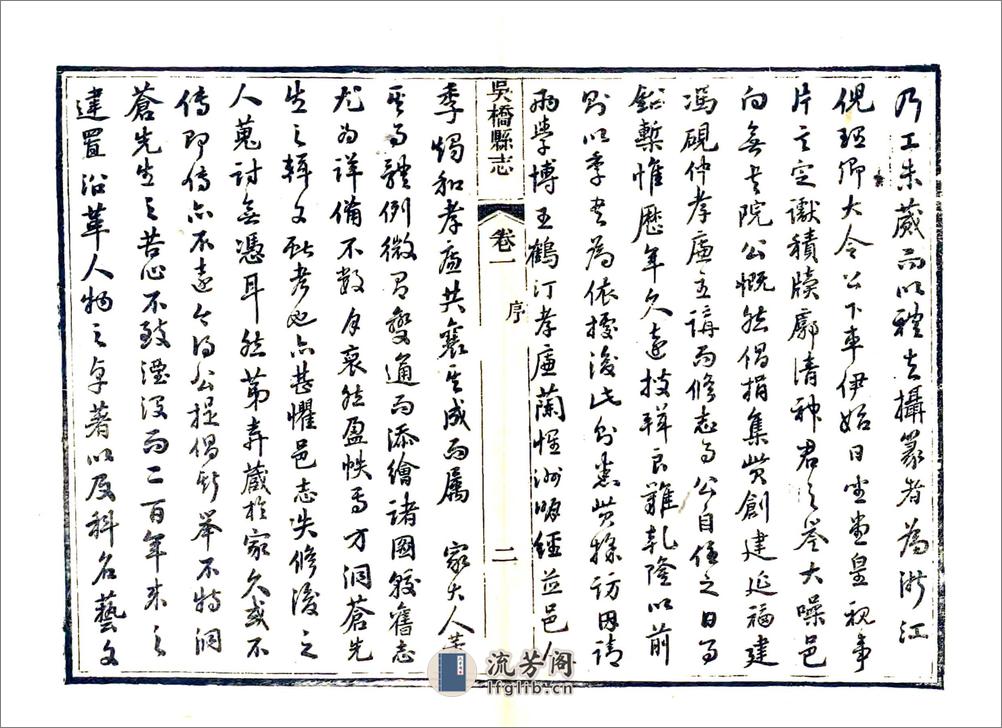 乃工未蕆而以程去攝篆者為浙江
倪瑶卿大令公下車伊始日坐堂皇親事
片言定讞積牘廓清神君之譽大噪邑
向無書院公慨然倡捐集貲創建延福建
馮硯仲孝廉主講而修志事公自任之日事
鉛槧惟歷年久遠搜輯良難乾隆以前
則以季書為依據後此則悉資採訪因請
兩學博王鶴汀孝廉蘭惺洲明經並邑人
吳橋縣志
卷一
序
二
季燭和孝廉共襄其成而屬 家大人
其事體例微有變通而添繪諸圖較舊志
尤為詳備不數月裒然盈帙焉方洞蒼先
生之輯文獻考也亦甚懼邑志失修後之
人蒐討無憑耳然第弆藏於家久或不
傳即傳亦不遠今得公提倡斯舉不特洞
蒼先生之苦心不致湮沒而二百年來之
建置沿革人物之卓著以及科名藝文
流芳阁
lfglib.cn